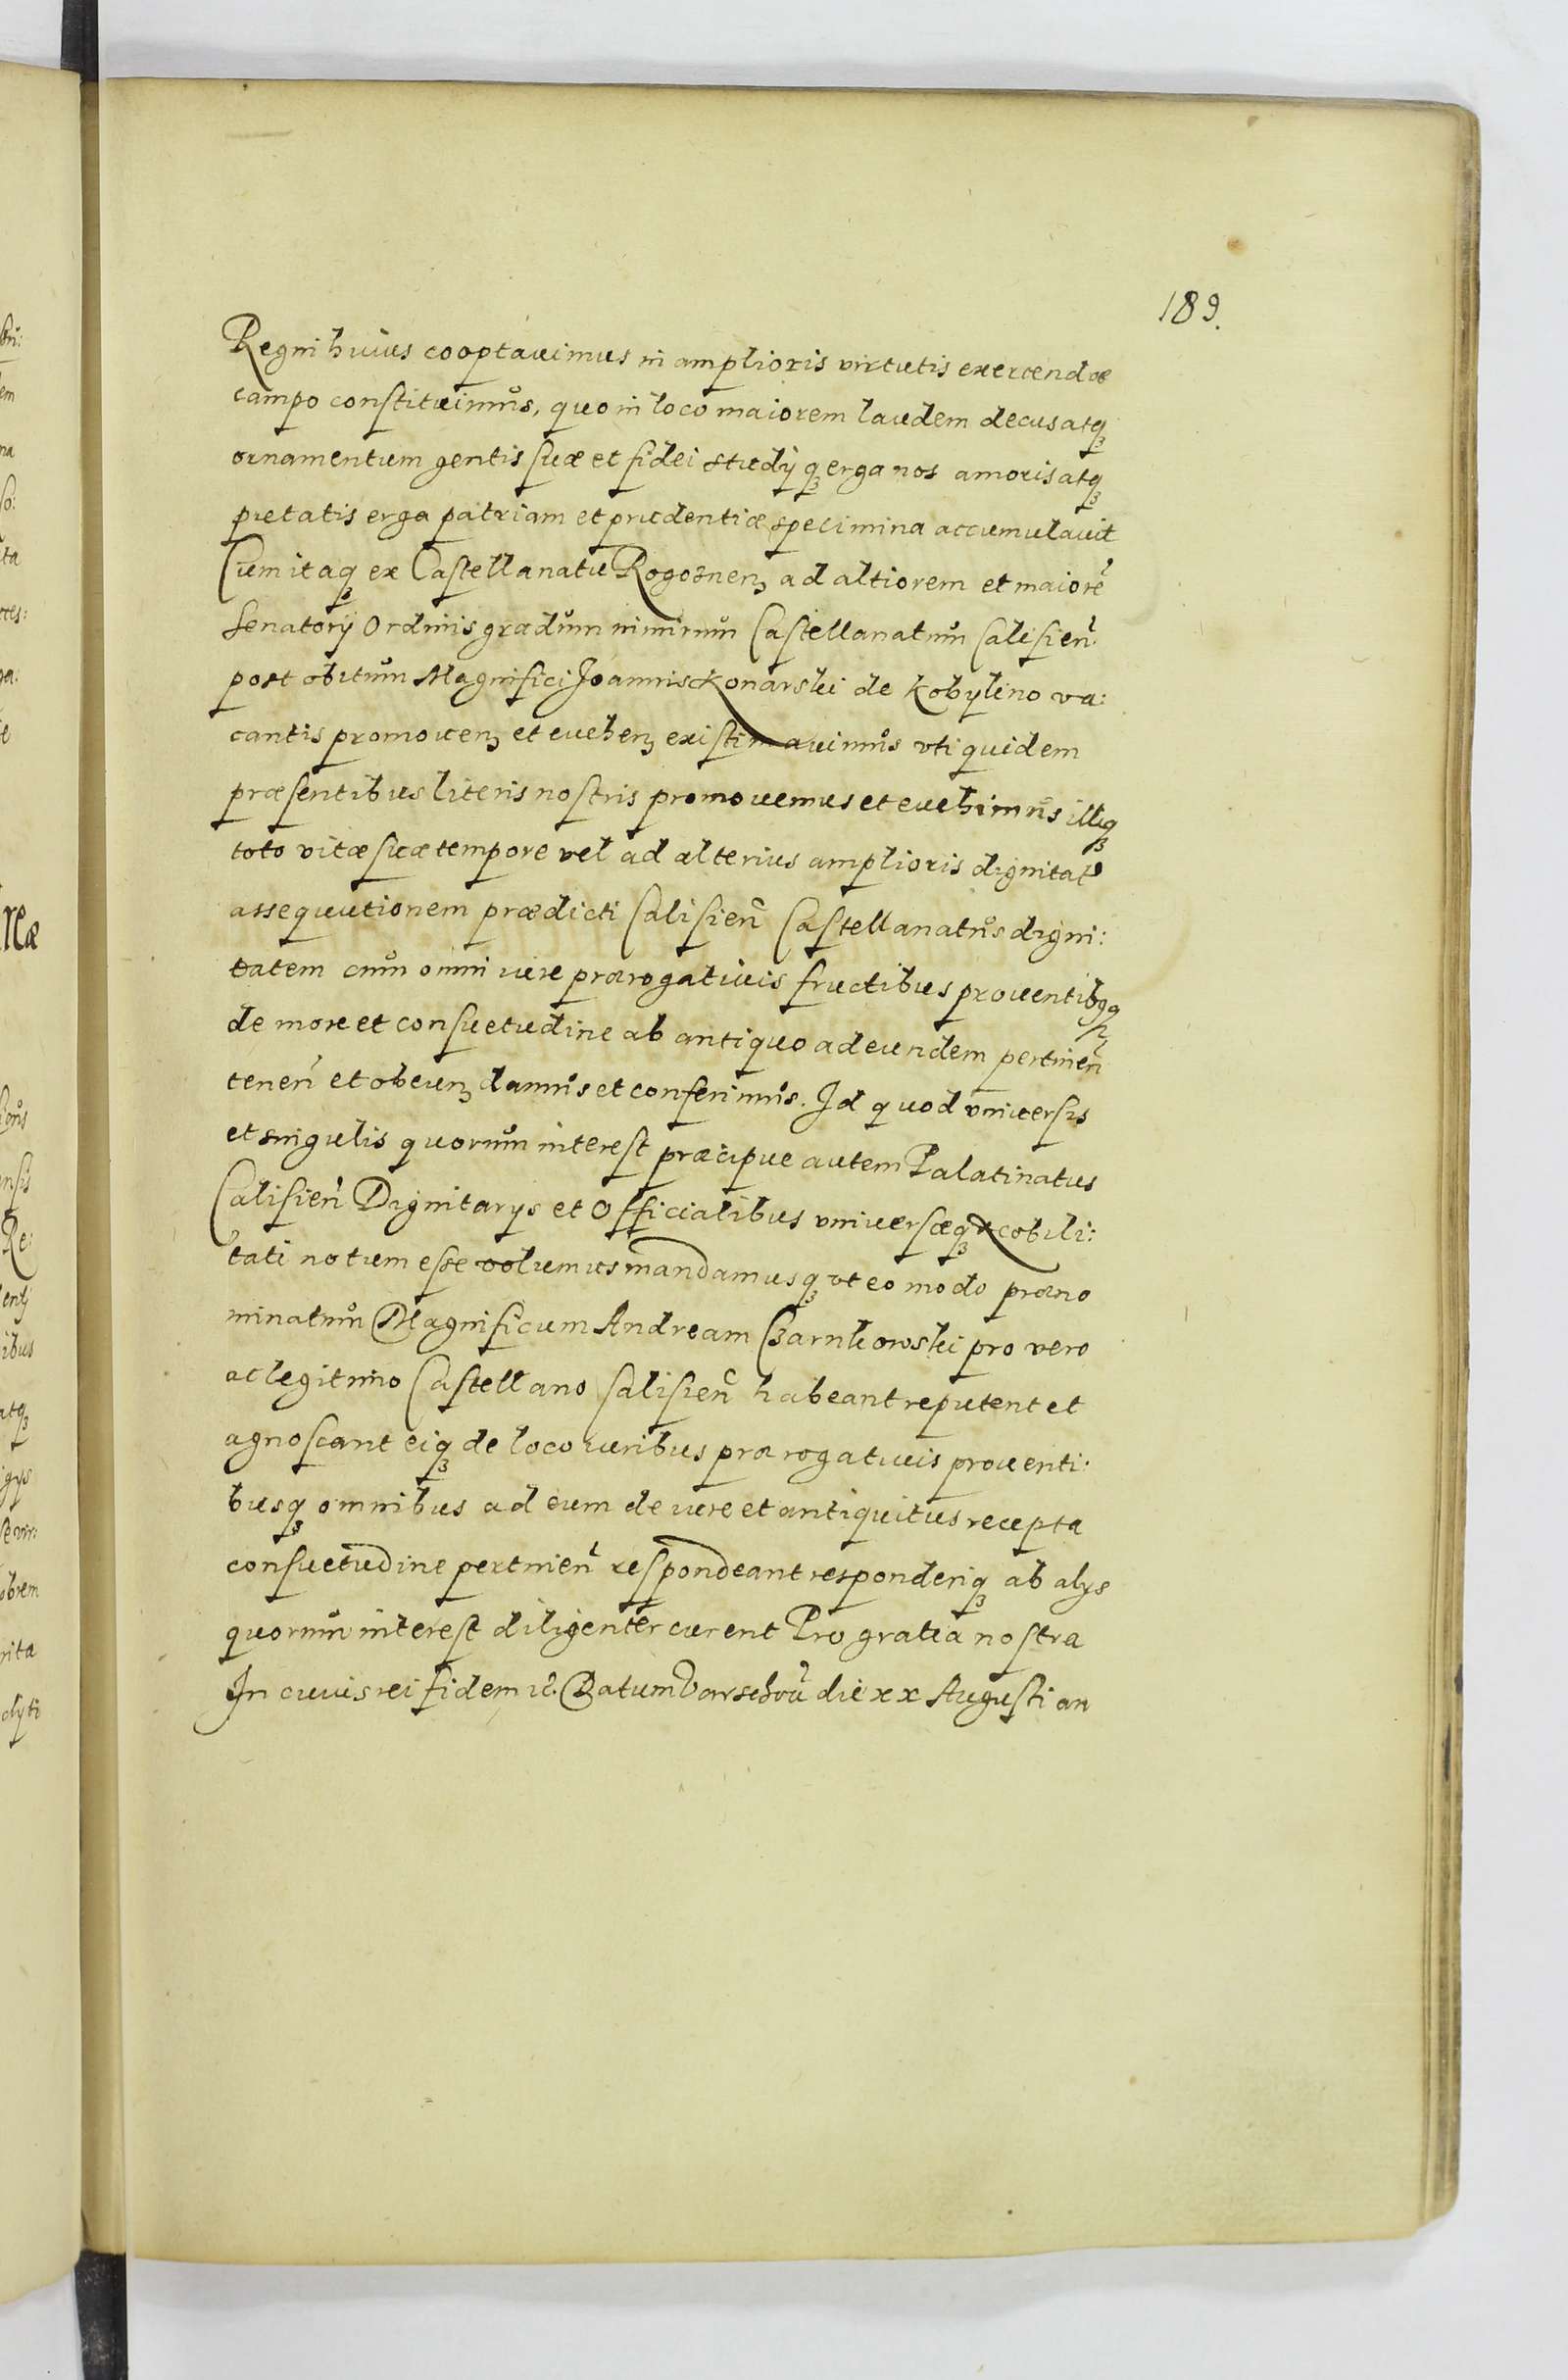 189.
Regni huius cooptauimus in amplioris virtutis exercendæ
campo constituimus, quo in loco maiorem laudem decus atq₃
ornamentum gentis suæ et fidei studÿq₃ erga nos amoris atq₃
pietatis erga patriam et prudentiæ specimina accumulauit
Cum itaq₃ ex Castellanatu Rogosnenʒ ad altiorem et maiorẽ
Senatorÿ Ordinis gradum nimirum Castellanatum Calisieñ
post obitum Magnifici Joannis Konarski de Kobylino va:
cantis promouenʒ et euehenʒ existimauimus vti quidem
præsentibus literis nostris promouemus et euehimus illiq₃
toto vitæ suæ tempore vel ad alterius amplioris dignitat
assequutionem prædicti Calisieñ Castellanatus digni:
tatem cum omni iure prærogatiuis fructibus prouentibq₃
de more et consuetudine ab antiquo ad eundem pertineñ
teneñ et obeunʒ damus et conferimus. Id quod vniuersis
et singulis quorum interest præcipue autem Palatinatus
Calisieñ Dignitarÿs et Officialibus vniuersæq₃ Nobili:
tati notum esse volumus mandamusq₃ vt eo modo præno
minatum Magnificum Andream Czarnkowski pro vero
ac legitimo Castellano Calisieñ habeant reputent et
agnoscant eiq₃ de loco iuribus prærogatiuis prouenti:
busq₃ omnibus ad eum de iure et antiquitus recepta
consuetudine pertineñ respondeant responderiq₃ ab alÿs
quorum interest diligenter curent Pro gratia nostra
In cuius rei fidem &c. Datum Varschou̅ die xx Augusti an